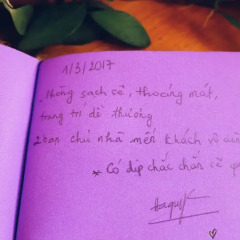 1/3/2017
_ Phòng sạch sẽ, thoáng mát,
trang trí dễ thương
chủ nhà mến khách và
* Có dịp chắc chắn sẽ